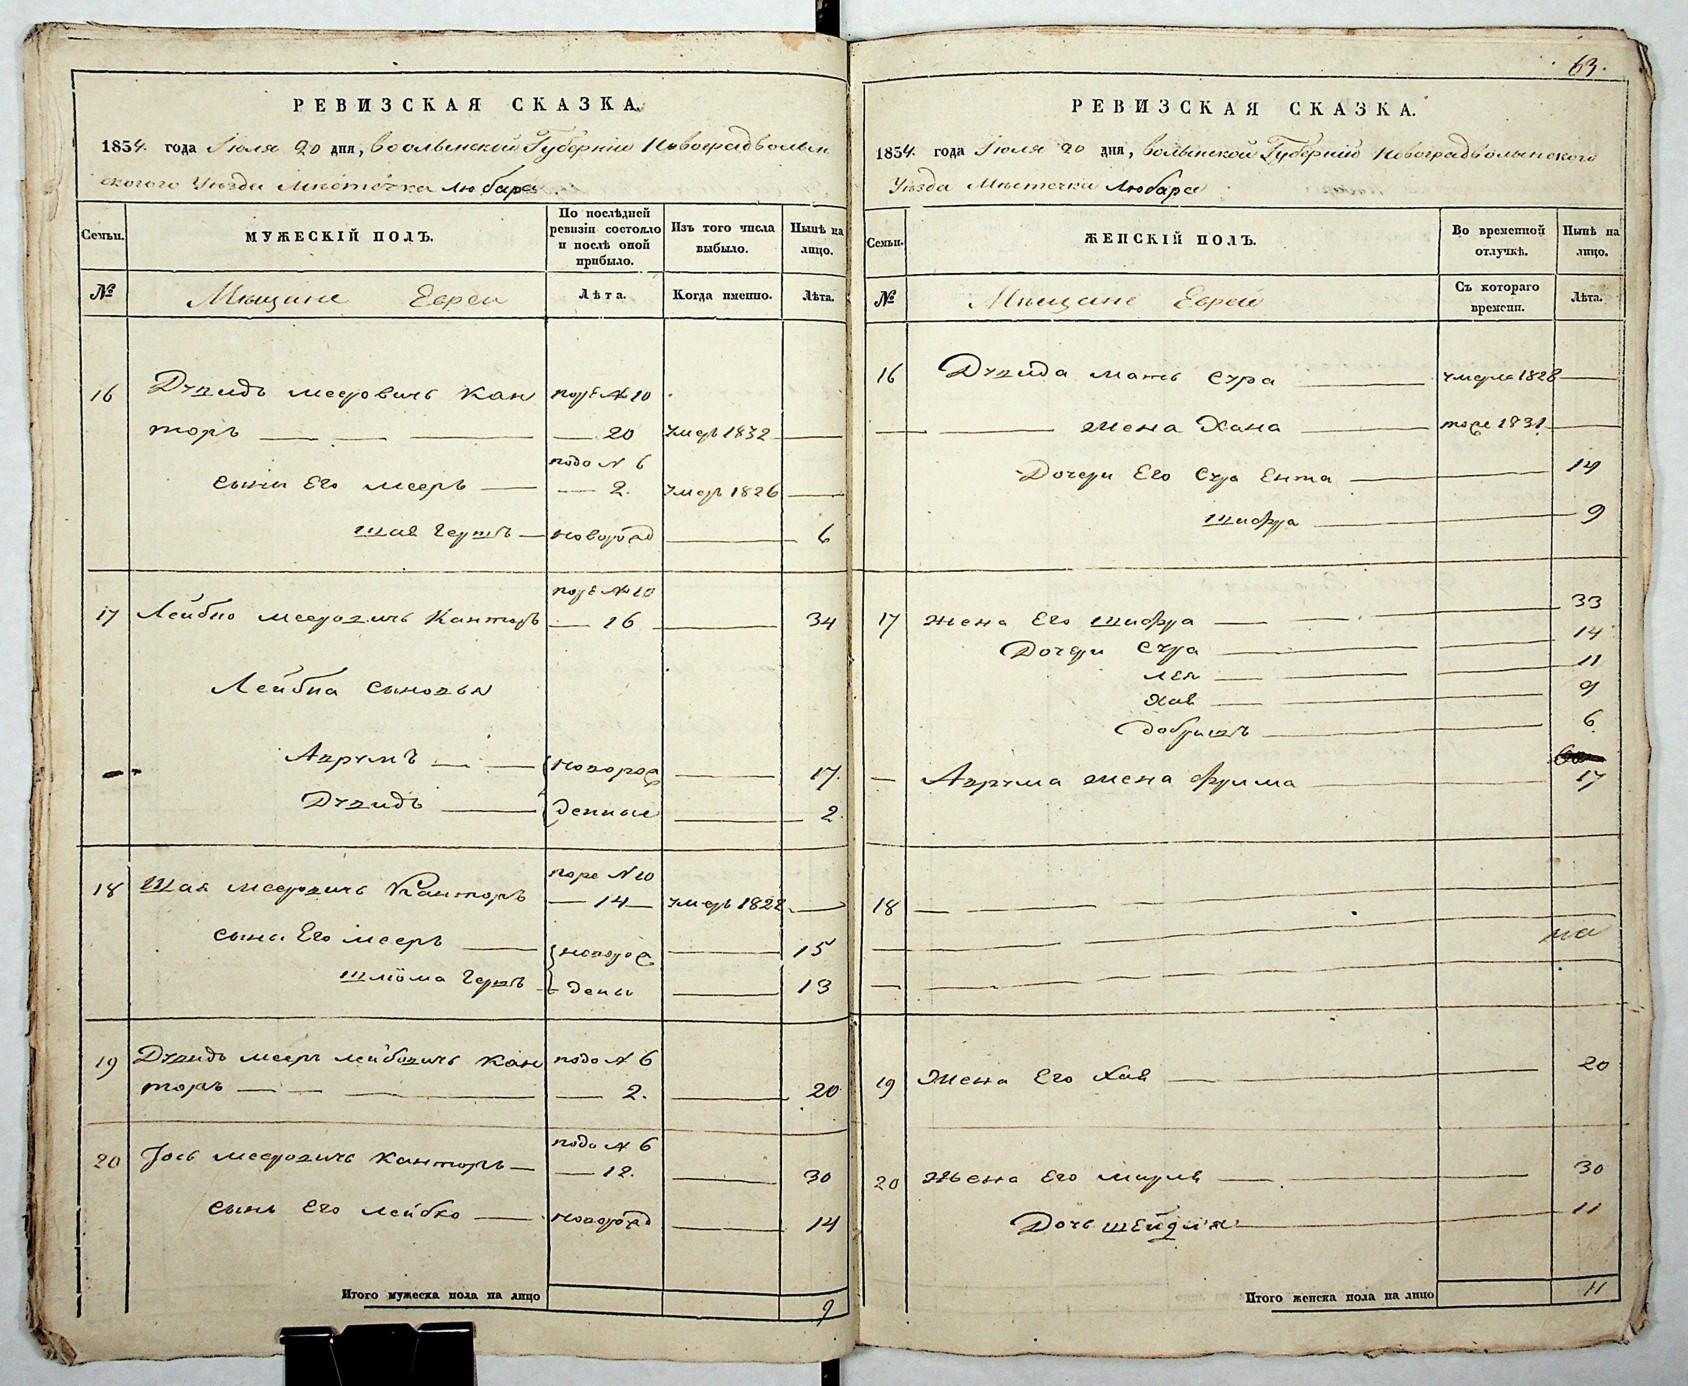 РЕВИЗСКАЯ СКАЗКА.
1834. года Іюля 20 дня, Волынской Губерніи Новоградволын
скогого Уѣзда Мѣстечка Любара
Семьи.
МУЖЕСКІЙ ПОЛЪ.
По послѣдней ревизіи состояло и послѣ оной прибыло.
Изъ того числа выбыло.
Нынѣ на лицо.
№
Мѣщане Евреи
Лѣта.
Когда именно.
Лѣта.
16 Дувидъ Мееровичъ Кан № 10
торъ 20 умеръ 1832
подо N 6
сыны Его Мееръ 2. умеръ 1826
Шая Гершъ новорожд 6
№ 10
17 Лейбко Мееровичъ Канторъ 16 34
Лейбка сыновья
Аврумъ новорож 17.
Дувидъ денные 2.
N 10
18 Шая Мееровичъ Канторъ 14 умеръ 1828
сыны Его Мееръ новорож 15
Шліома Гершъ дены 13
19 Дувидъ Мееръ Лейбовичъ Кан подо № 6
торъ 2. 20
подо № 6
20 Іось Мееровичъ Канторъ 12. 30
сынъ Его Лейбко новорожд 14
Итого мужеска пола на лицо 9
63.
РЕВИЗСКАЯ СКАЗКА.
1834. года Іюля 20 дня, Волынской Губерніи Новоградволынского
Уѣзда Мѣстечка Любара
Семьи.
ЖЕНСКІЙ ПОЛЪ.
Во временной отлучкѣ.
Нынѣ на лицо.
№
Мѣщане Евреи
Съ котораго времени.
Лѣта.
16 Дувида мать Сура умерла 1828
жена Хана тоже 1831
Дочери Его Сура Ента 14
Шифра 9
17 жена Его Шифра 33
Дочери Сура 14
Лея 11
Хая 9
Добрышъ 6
Аврума жена Фрима 17
18
на
19 Жена Его Хая 20
20 Жена Его Маля 30
Дочь Шейдля 11
Итого женска пола на лицо 11